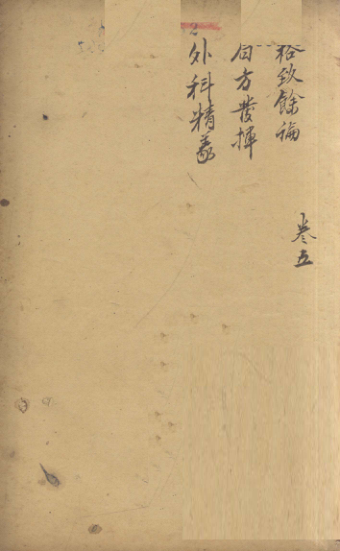 卷五
格致餘論
局方發揮
外科精義